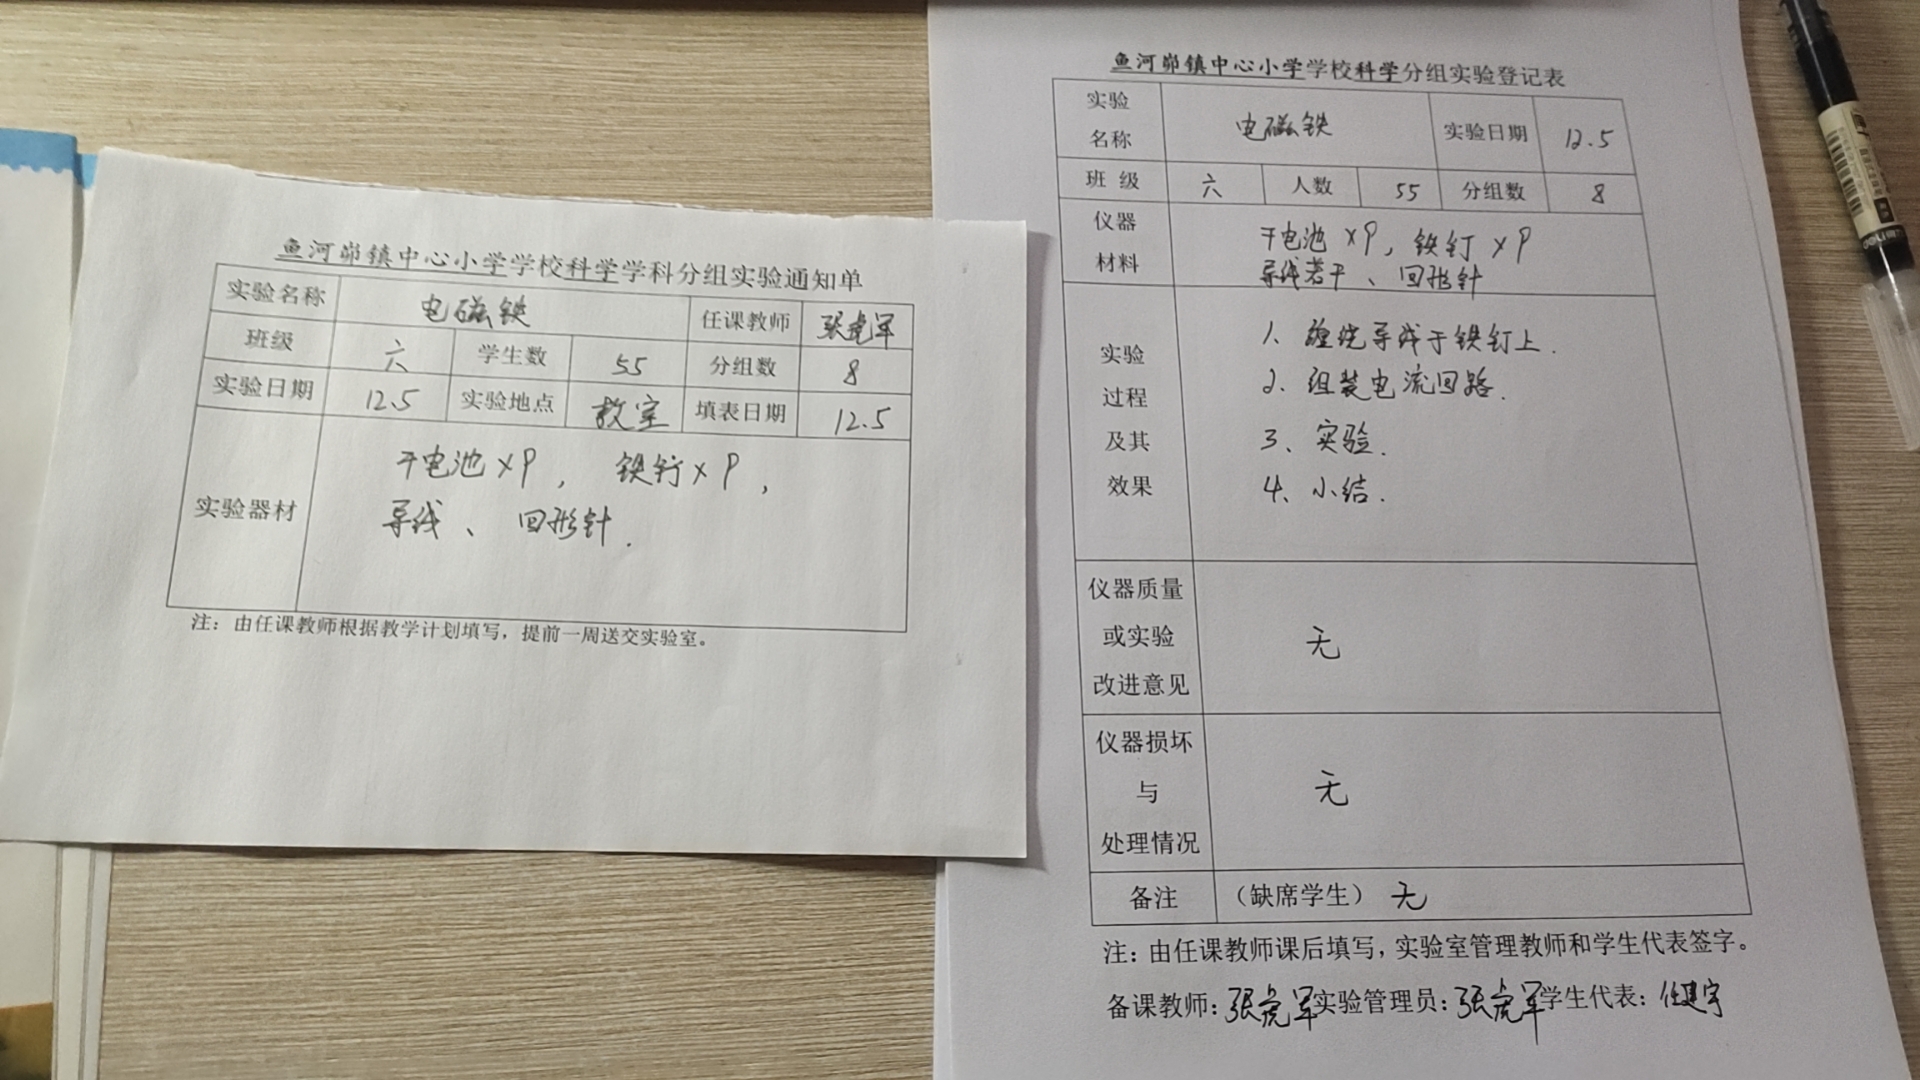 鱼河峁镇中心小学学校科学学科分组实验通知单
实验名称 电磁铁 任课教师 张虎军
班级 六 学生数 55 分组数 8
实验日期 12.5 实验地点 教室 填表日期 12.5
实验器材
干电池×P, 铁钉×P,
导线、回形针.
注：由任课教师根据教学计划填写，提前一周送交实验室。
鱼河峁镇中心小学学校科学分组实验登记表
实验名称 电磁铁 实验日期 12.5
班级 六 人数 55 分组数 8
仪器材料
干电池×P, 铁钉×P
导线若干、回形针
实验过程及其效果
1、缠绕导线于铁钉上.
2、组装电流回路.
3、实验.
4、小结.
仪器质量或实验改进意见 无
仪器损坏与处理情况 无
备注 （缺席学生） 无
注：由任课教师课后填写，实验室管理教师和学生代表签字。
备课教师：张虎军 实验管理员：张虎军 学生代表：任建宇
deli